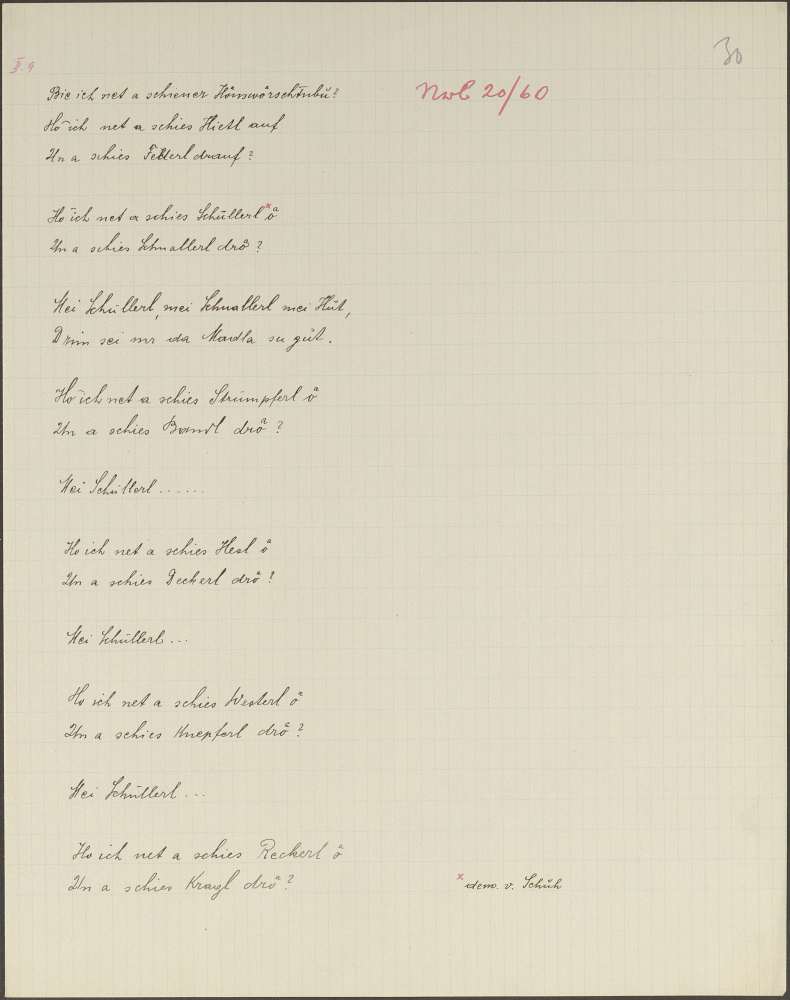 30
II. 9
Nwl 20/60
Bie ich net a schiener
Ho ich net a schies Hietl auf
Un a schies Federl drauf?
Ho ich net a schies Schüllerl x å
Un a schies Schnallerl drå?
Mei Schüllerl, mei Schnallerl mei Hüt,
Drim sei mr die Madla su güt.
Ho ich net a schies Strümpferl å
Un a schies Bandl drå?
Mei Schüllerl......
Ho ich net a schies Hesl å
Un a schies Deckerl drå?
Mei Schüllerl...
Ho ich net a schies Westerl å
Un a schies Knepferl drå?
Mei Schüllerl...
Ho ich net a schies Reckerl å
Un a schies Kragl drå?
x dem. v. Schüh